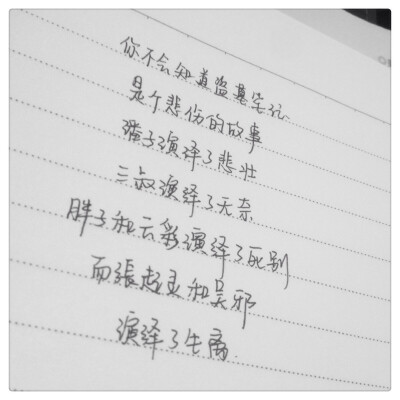 你不会知道盗墓笔记
是个悲伤的故事
潘子演绎了悲壮
三叔演绎了无奈
胖子和云彩演绎了死别
而張起灵和吴邪
演绎了生离